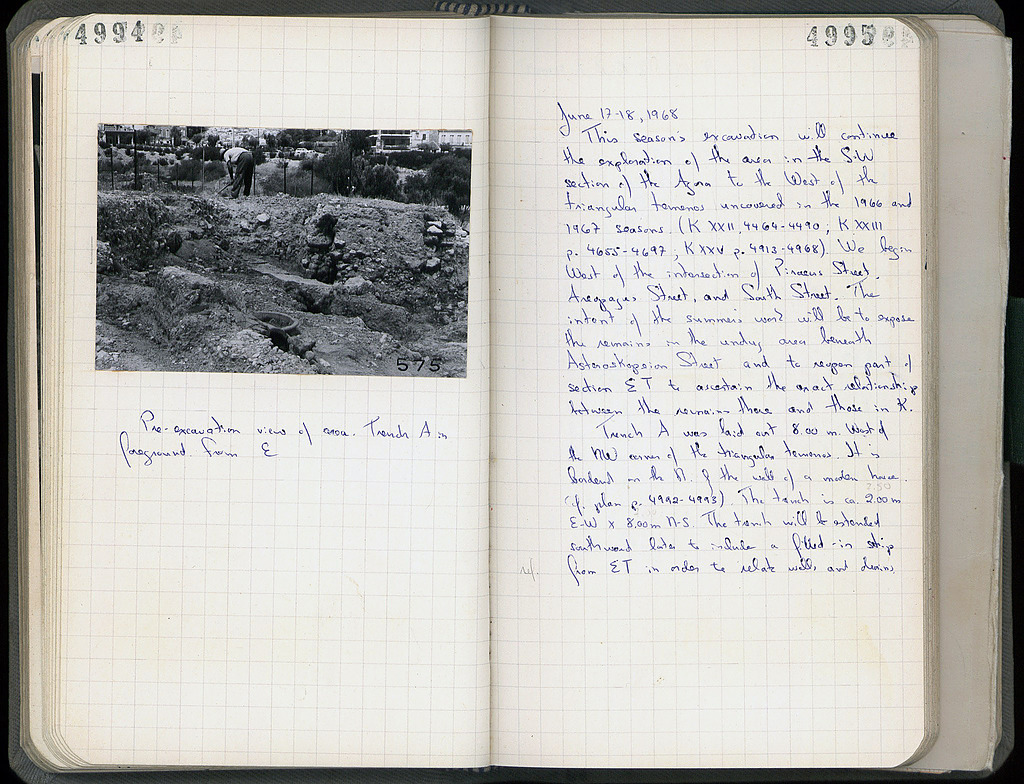 4994
575
Pre-excavation view of area. Trench A in
foreground from E
4995
June 17-18, 1968
This season's excavation will continue
the exploration of the area in the S-W
section of the Agora to the West of the
triangular temenos uncovered in the 1966 and
1967 seasons. (K XXII, 4464-4490; K XXIII
p. 4655-4697; K XXV p. 4913-4968). We begin
West of the intersection of Piraeus Street,
Areopagus Street, and South Street. The
intent of the summer's work will be to expose
the remains in the undug area beneath
Asteroskopeion Street and to reopen part of
section ET to ascertain the exact relationship
between the remains there and those in K.
Trench A was laid out 8.00 m. West of
the NW corner of the triangular temenos. It is
bordered on the N. by the wall of a modern house.
(cf. plan p. 4992-4993). The trench is ca. 2.00m
7.50
E-W x 8.00m N-S. The trench will be extended
southward later to include a filled-in strip
ref. from ET in order to relate walls and drains,